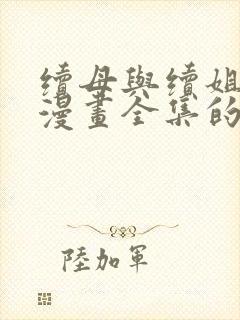 續母與續姐
漫畫全集的
陸加軍